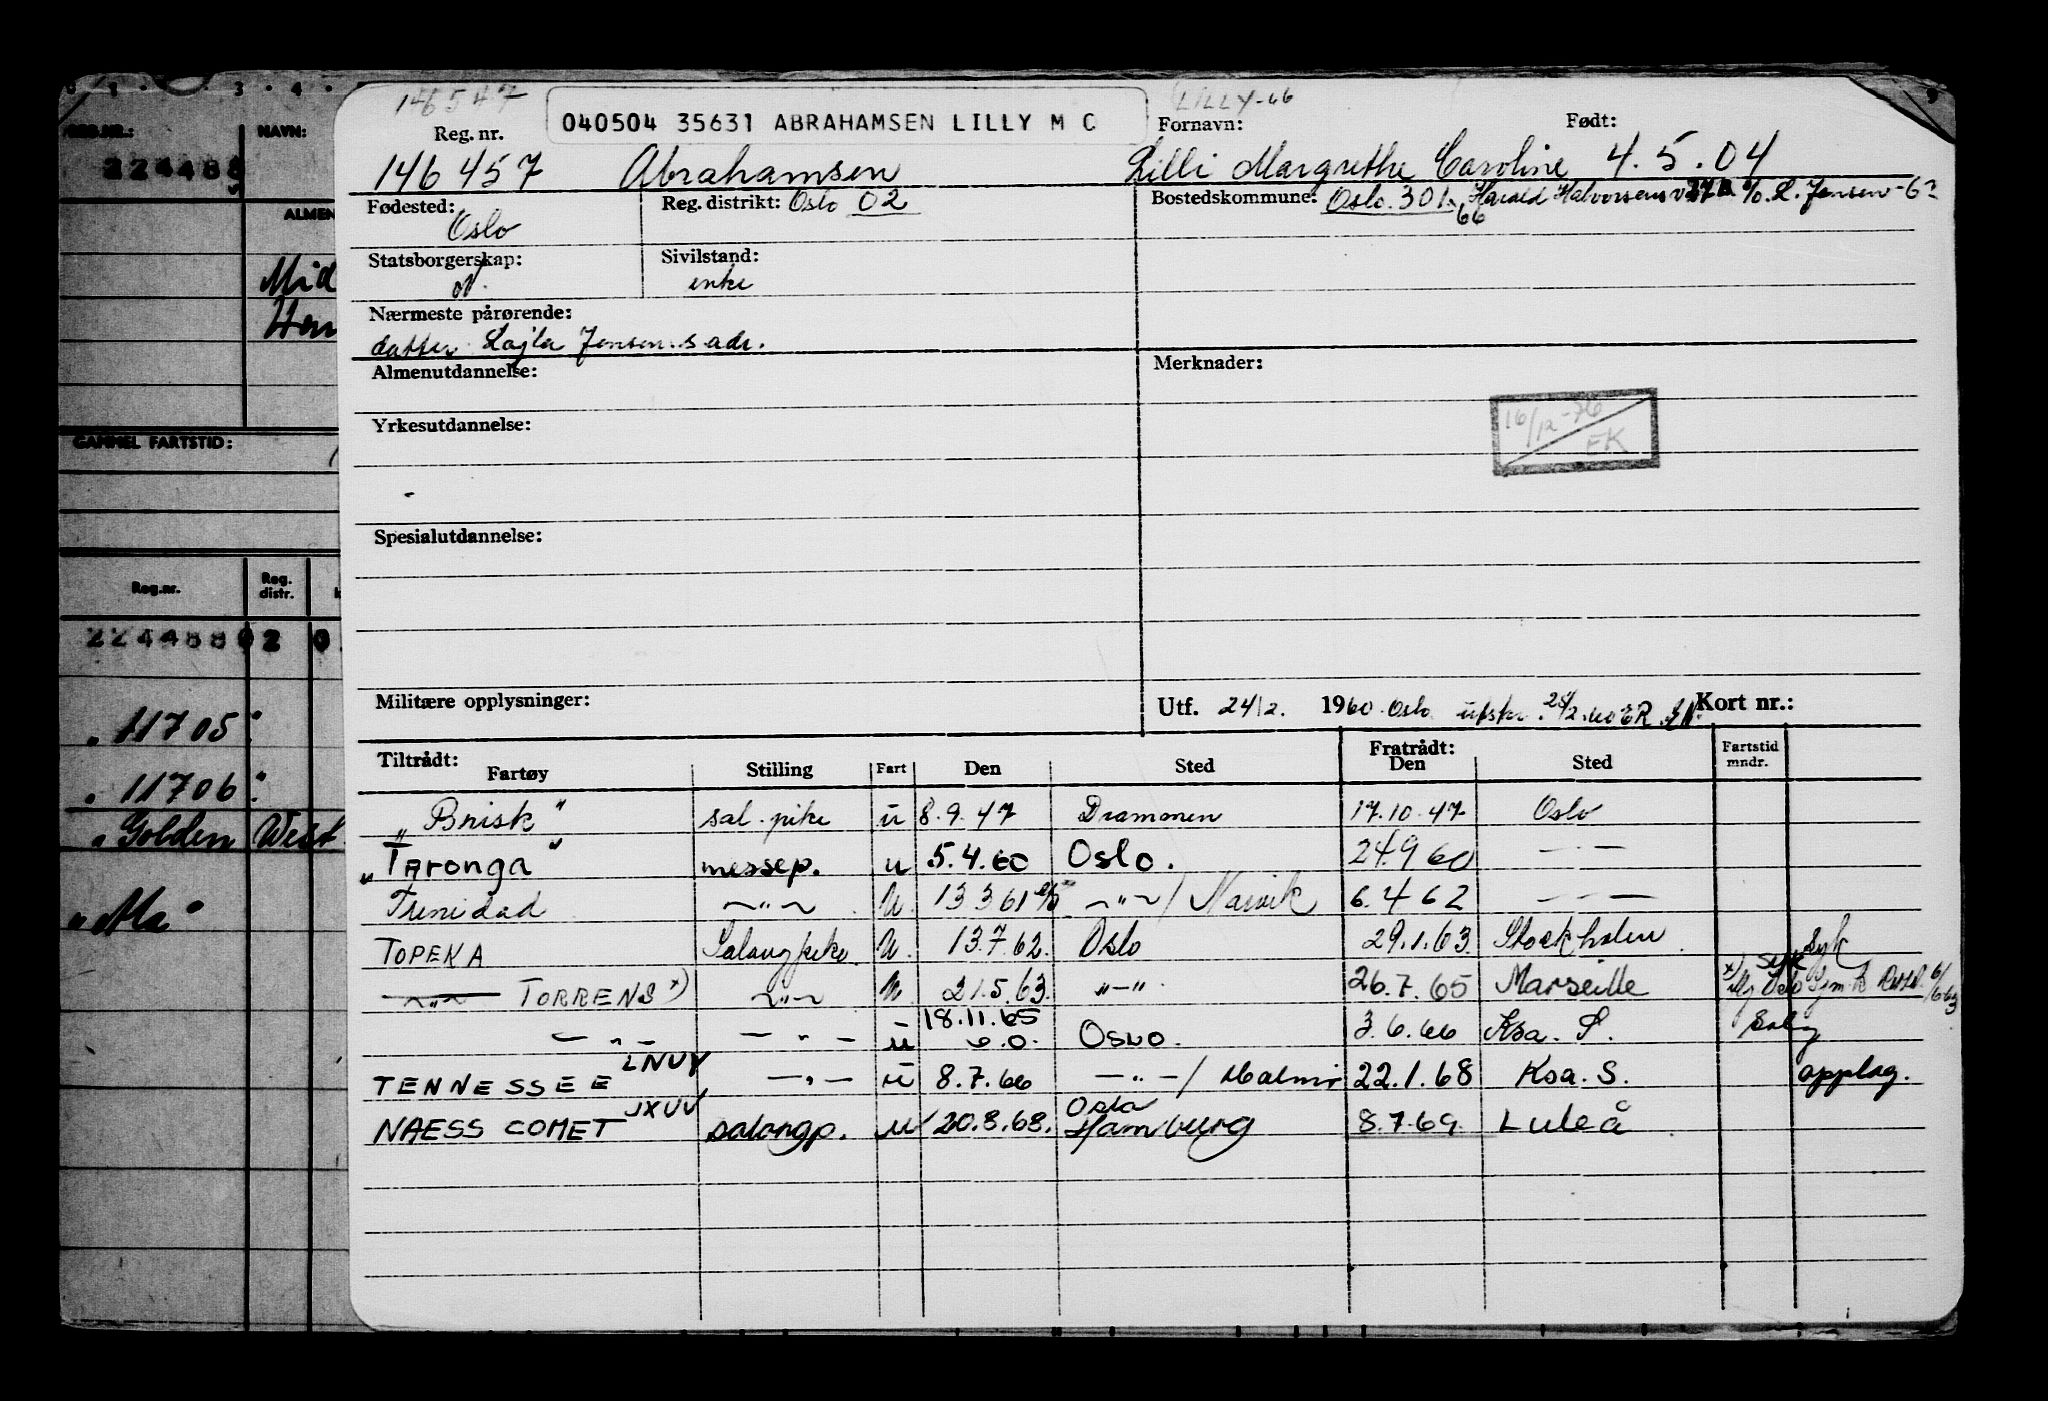 146547
LILLY-66
040504 35631 ABRAHAMSEN LILLY M C
Reg. nr. Fornavn: Født:
146 457 Abrahamsen Lilli Margrethe Caroline 4.5.04
Fødested: Reg. distrikt: Oslo 02 Bostedskommune: Oslo 301 Harald Halvorsens v. c/o. L. Jensen -
Oslo 66
Statsborgerskap: Sivilstand:
N. enke
Nærmeste pårørende:
datter Lajla Jensen s.adr.
Almenutdannelse: Merknader:
16/12-76
EK
Yrkesutdannelse:
Spesialutdannelse:
Militære opplysninger: Utf. 24/2. 1960 Oslo utskr. Kort nr.:
Tiltrådt: Fratrådt: Fartstid
Fartøy Stilling Fart Den Sted Den Sted mndr.
"Brisk" sal.pike u 8.9.47 Drammen 17.10.47 Oslo
"Taronga" messep. u 5.4.60 Oslo. 24.9 60 — " —
Trinidad — " — u 13 3 61 — " — / Narvik 6.4 62 — " —
TOPEKA Salongpike u 13.7.62. Oslo 29.1.63. Stockholm syk
— " — TORRENS x) — " — u 21.5.63. — " — 26.7.65 Marseille syk
— " — — " — u 18.11.65 Oslo. 3.6.66 Ksa. S.
TENNESSEE LNUY — " — u 8.7.66 — " — / Malmö 22.1.68 Ksa. S. opplag.
NAESS COMET JXUV salongp. u 20.8.68. Oslo Hamburg 8.7.69. Luleå
REG.NR.: NAVN:
224488
ALMEN
Mid
GAMMEL FARTSTID:
Reg.nr. Reg. distr.
224488 02 0
" 11705 "
" 11706 "
" Golden West